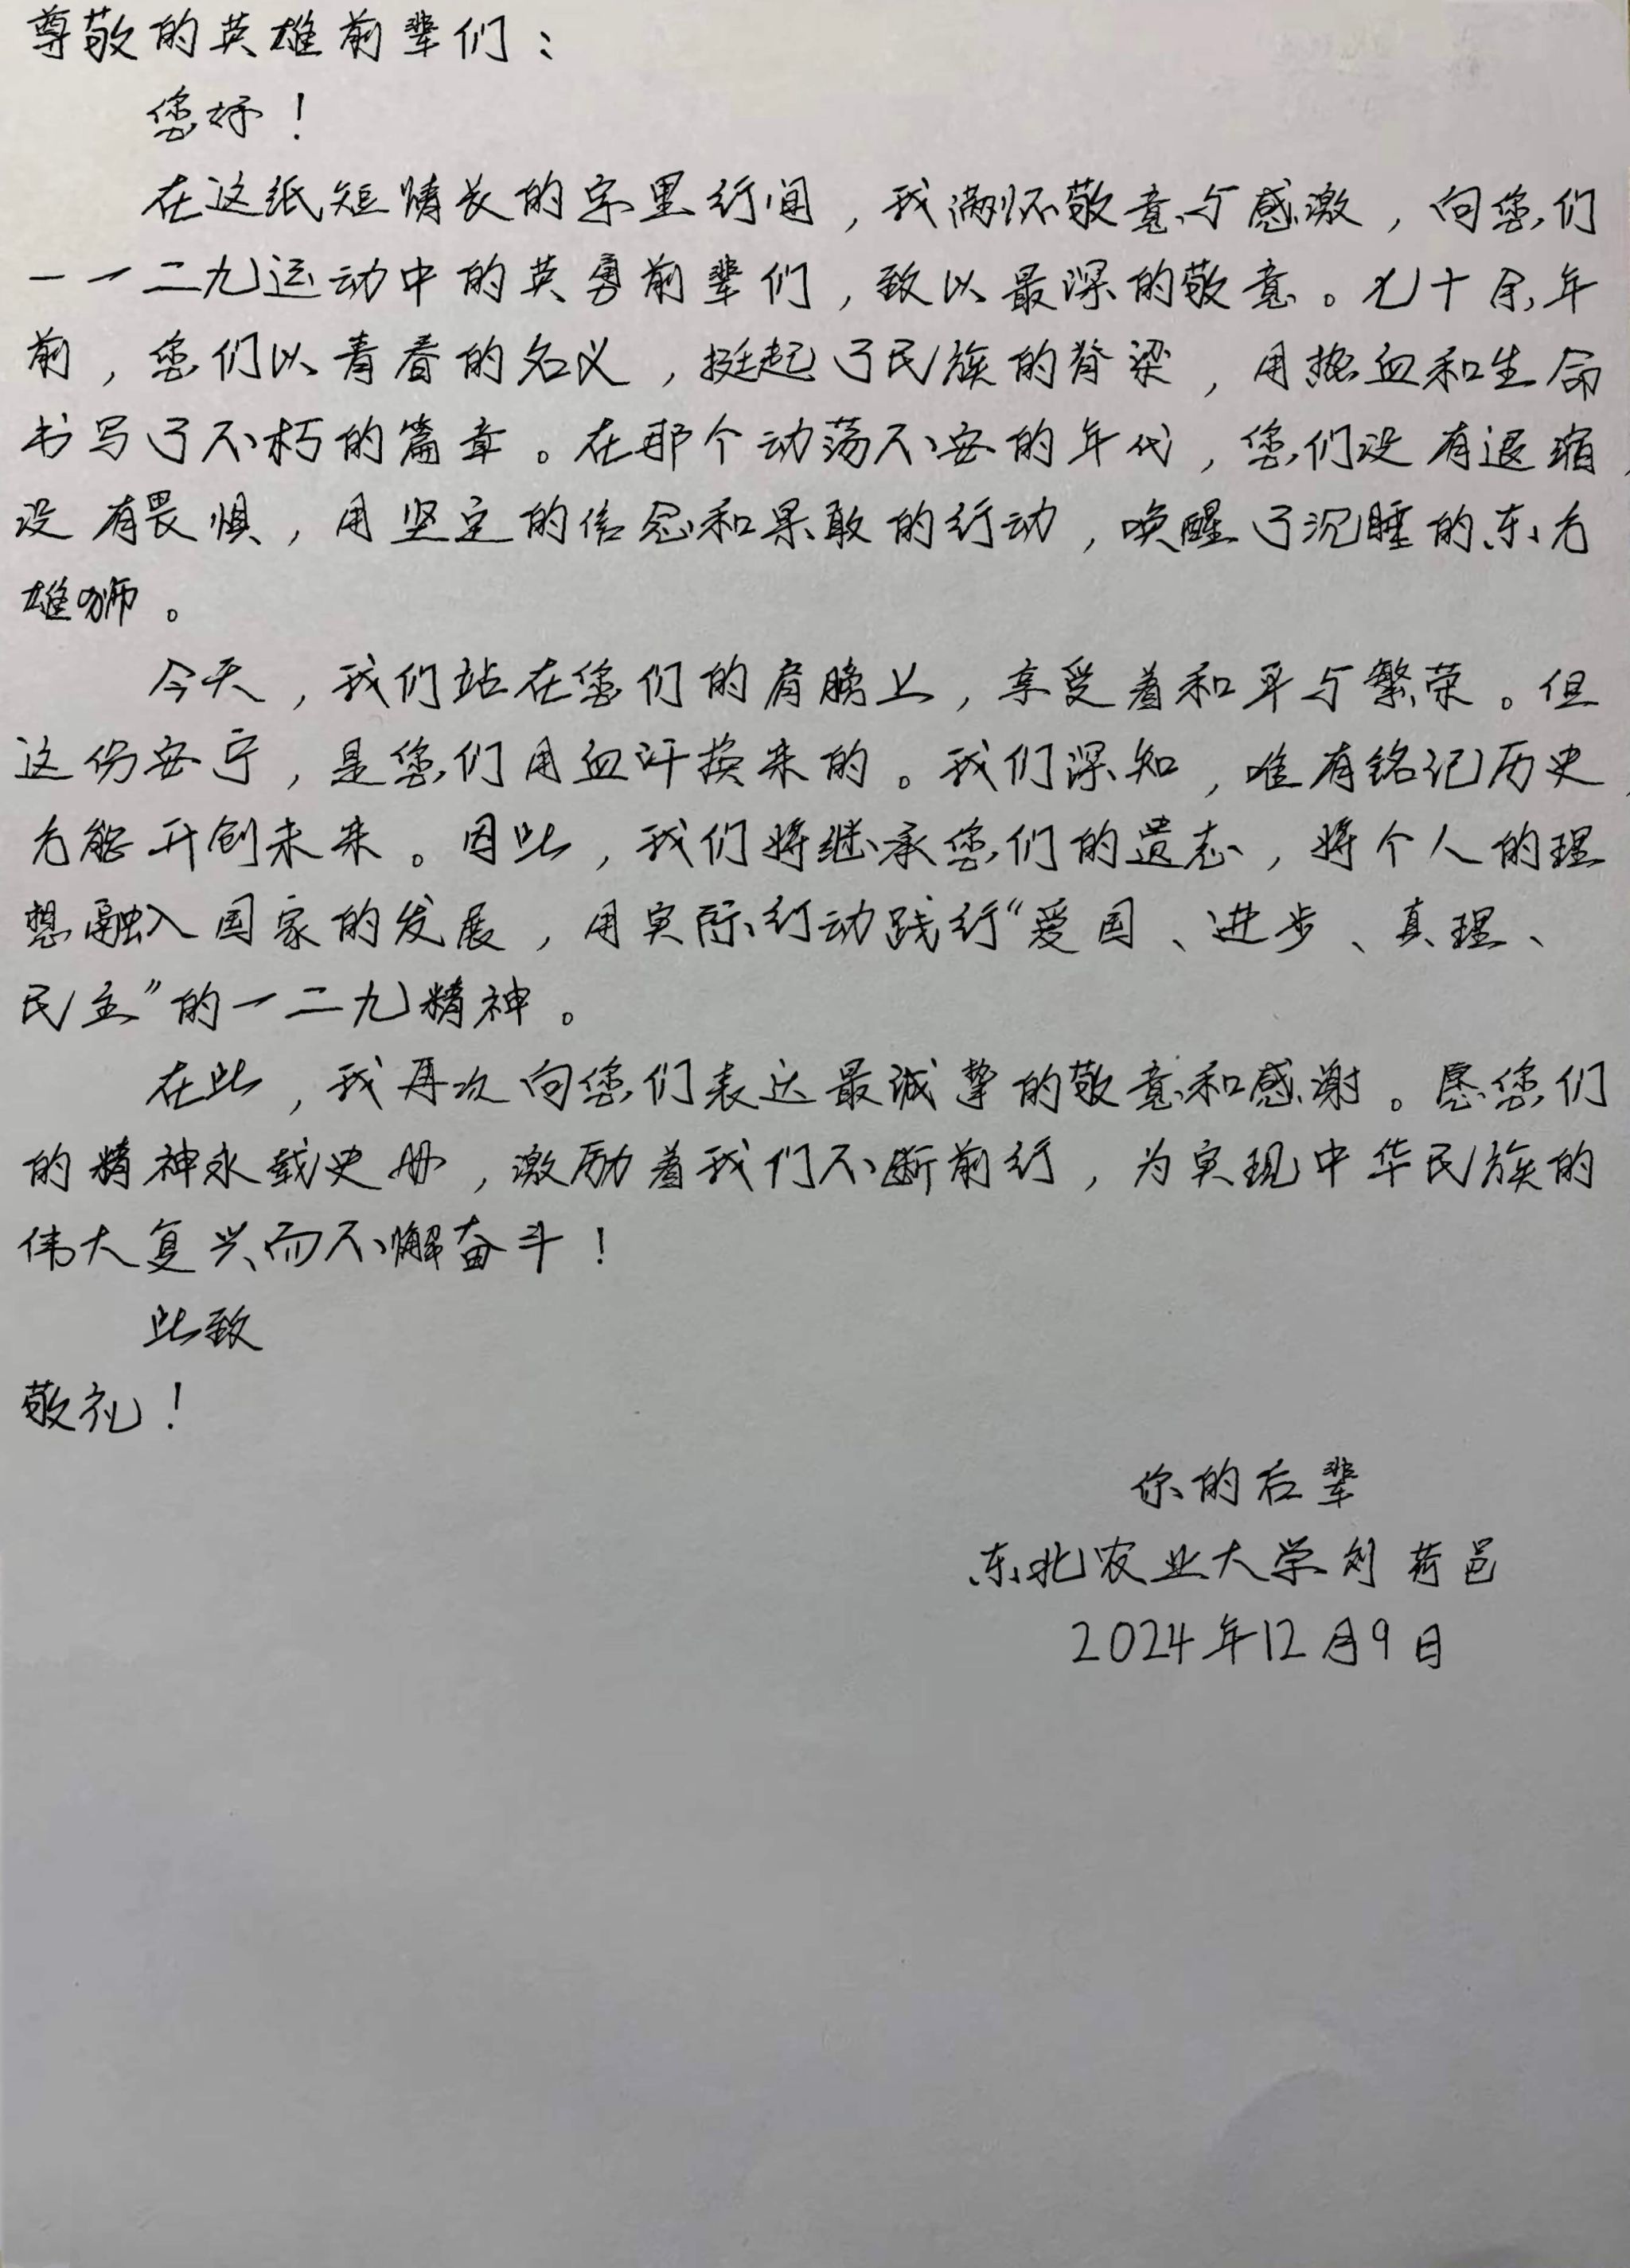 尊敬的英雄前辈们：
您好！
在这纸短情长的字里行间，我满怀敬意与感激，向您们
一一二九运动中的英勇前辈们，致以最深的敬意。九十余年
前，您们以青春的名义，挺起了民族的脊梁，用热血和生命
书写了不朽的篇章。在那个动荡不安的年代，您们没有退缩，
没有畏惧，用坚定的信念和果敢的行动，唤醒了沉睡的东方
雄狮。
今天，我们站在您们的肩膀上，享受着和平与繁荣。但
这份安宁，是您们用血汗换来的。我们深知，唯有铭记历史，
方能开创未来。因此，我们将继承您们的遗志，将个人的理
想融入国家的发展，用实际行动践行“爱国、进步、真理、
民主”的一二九精神。
在此，我再次向您们表达最诚挚的敬意和感谢。愿您们
的精神永载史册，激励着我们不断前行，为实现中华民族的
伟大复兴而不懈奋斗！
此致
敬礼！
你的后辈
东北农业大学刘荷邑
2024年12月9日